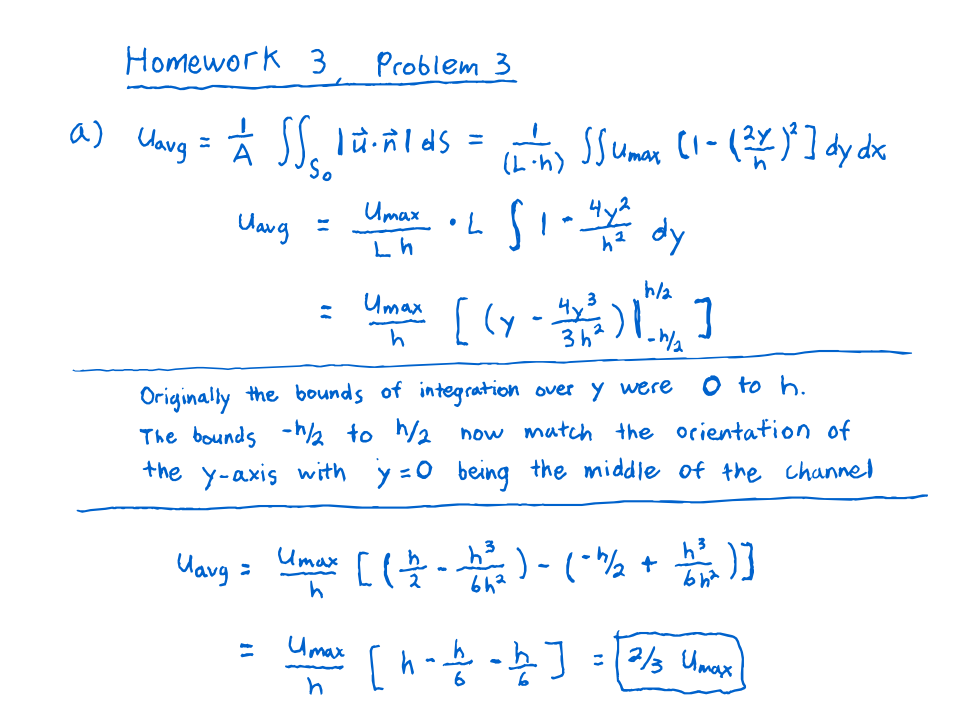 Homework 3, Problem 3
a) u_avg = 1/A ∬_{S_0} |u⃗·n⃗| dS = 1/(L·h) ∬ u_max [1-(2y/h)²] dy dx
u_avg = u_max/(L h) · L ∫ 1 - 4y²/h² dy
= u_max/h [(y - 4y³/3h²)|_{-h/2}^{h/2}]
Originally the bounds of integration over y were 0 to h.
The bounds -h/2 to h/2 now match the orientation of
the y-axis with y=0 being the middle of the channel
u_avg = u_max/h [(h/2 - h³/6h²) - (-h/2 + h³/6h²)]
= u_max/h [h - h/6 - h/6] = 2/3 u_max